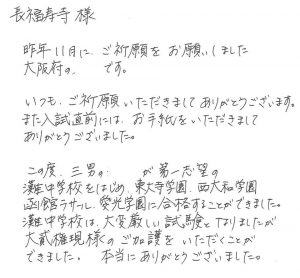 長福寿寺 様
昨年11月に、ご祈願をお願いしました
大阪府の、 です。
いつも、ご祈願いただきましてありがとうございます。
また入試直前には、お手紙をいただきまして
ありがとうございました。
この度、三男の が第一志望の
灘中学校をはじめ、東大寺学園、西大和学園
函館ラサール、愛光学園に合格することができました。
灘中学校は、大変厳しい試験となりましたが
大貮権現様のご加護をいただくことが
できました。本当にありがとうございました。